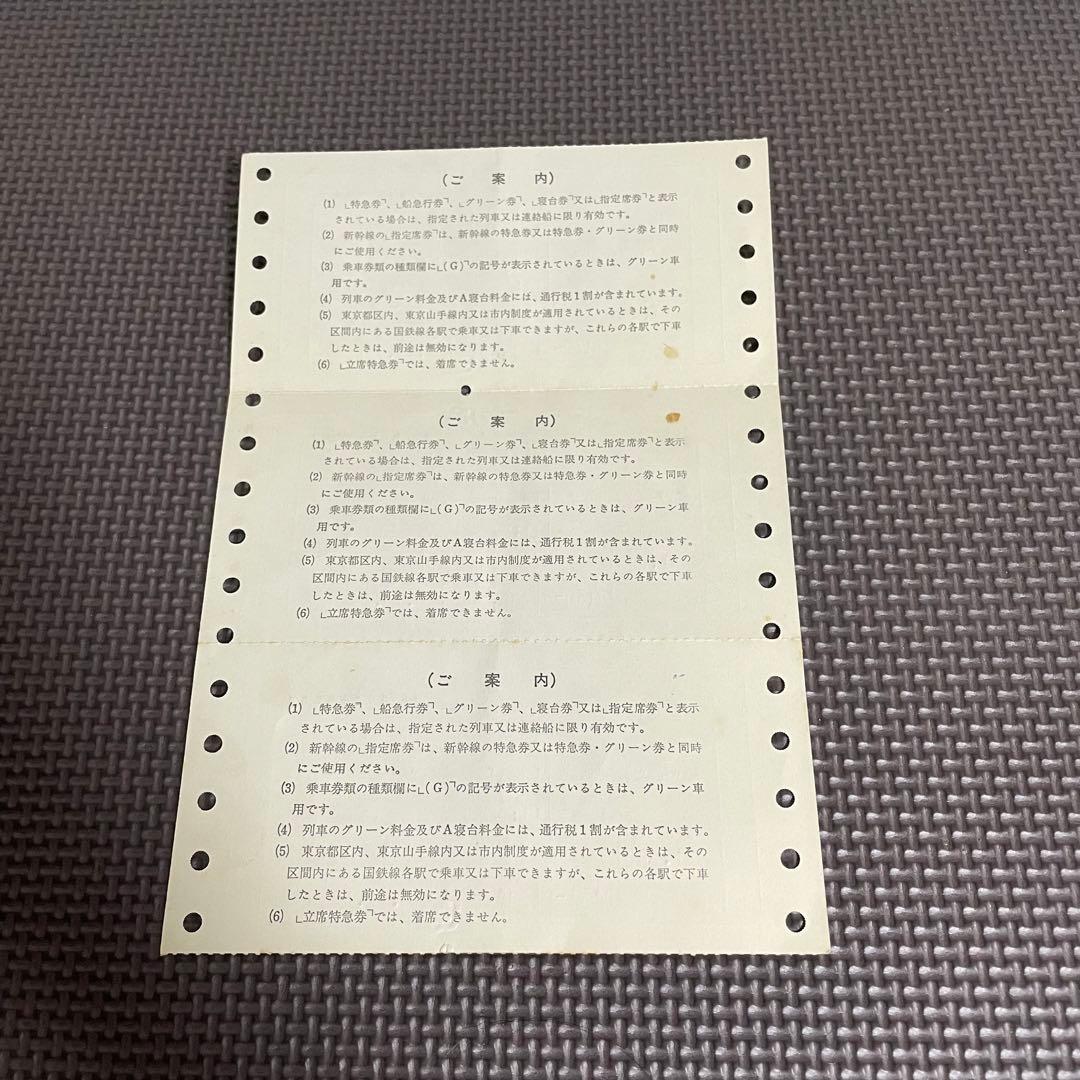 (ご 案 内)
(1) ｢特急券｣、｢船急行券｣、｢グリーン券｣、｢寝台券｣又は｢指定席券｣と表示
されている場合は、指定された列車又は連絡船に限り有効です。
(2) 新幹線の｢指定席券｣は、新幹線の特急券又は特急券・グリーン券と同時
にご使用ください。
(3) 乗車券類の種類欄に｢(G)｣の記号が表示されているときは、グリーン車
用です。
(4) 列車のグリーン料金及びA寝台料金には、通行税1割が含まれています。
(5) 東京都区内、東京山手線内又は市内制度が適用されているときは、その
区間内にある国鉄線各駅で乗車又は下車できますが、これらの各駅で下車
したときは、前途は無効になります。
(6) ｢立席特急券｣では、着席できません。
(ご 案 内)
(1) ｢特急券｣、｢船急行券｣、｢グリーン券｣、｢寝台券｣又は｢指定席券｣と表示
されている場合は、指定された列車又は連絡船に限り有効です。
(2) 新幹線の｢指定席券｣は、新幹線の特急券又は特急券・グリーン券と同時
にご使用ください。
(3) 乗車券類の種類欄に｢(G)｣の記号が表示されているときは、グリーン車
用です。
(4) 列車のグリーン料金及びA寝台料金には、通行税1割が含まれています。
(5) 東京都区内、東京山手線内又は市内制度が適用されているときは、その
区間内にある国鉄線各駅で乗車又は下車できますが、これらの各駅で下車
したときは、前途は無効になります。
(6) ｢立席特急券｣では、着席できません。
(ご 案 内)
(1) ｢特急券｣、｢船急行券｣、｢グリーン券｣、｢寝台券｣又は｢指定席券｣と表示
されている場合は、指定された列車又は連絡船に限り有効です。
(2) 新幹線の｢指定席券｣は、新幹線の特急券又は特急券・グリーン券と同時
にご使用ください。
(3) 乗車券類の種類欄に｢(G)｣の記号が表示されているときは、グリーン車
用です。
(4) 列車のグリーン料金及びA寝台料金には、通行税1割が含まれています。
(5) 東京都区内、東京山手線内又は市内制度が適用されているときは、その
区間内にある国鉄線各駅で乗車又は下車できますが、これらの各駅で下車
したときは、前途は無効になります。
(6) ｢立席特急券｣では、着席できません。